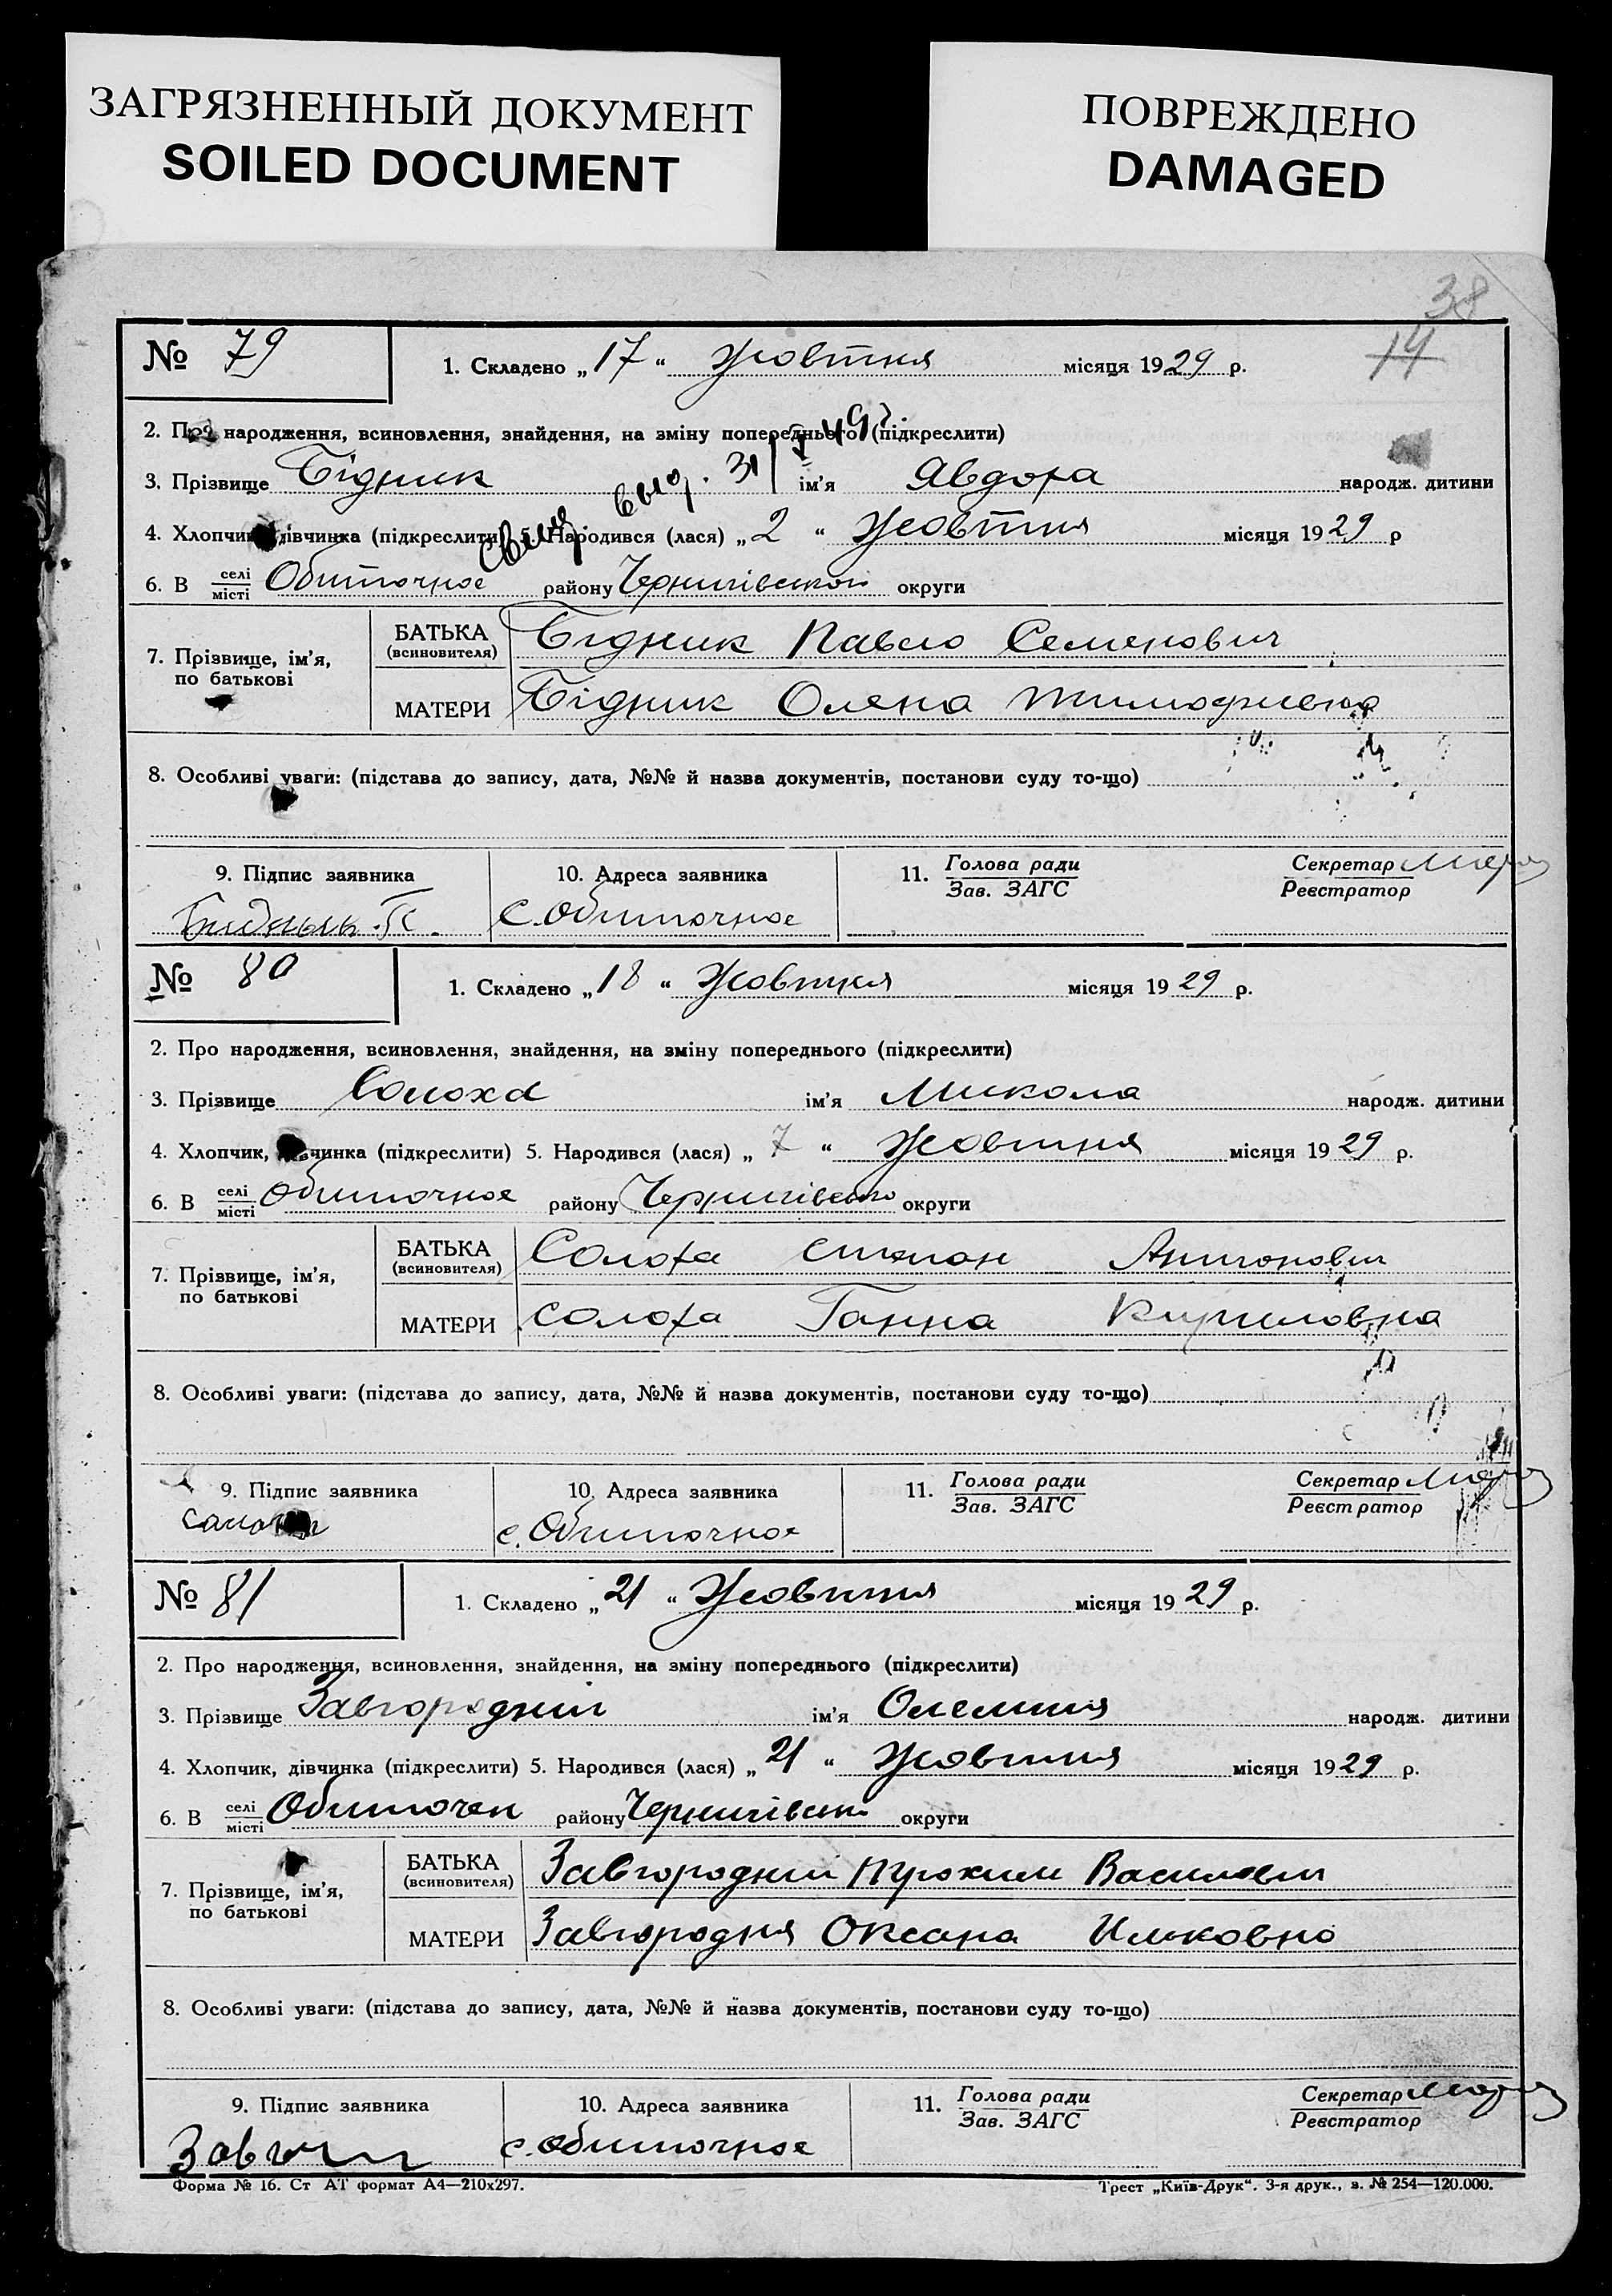 ЗАГРЯЗНЕННЫЙ ДОКУМЕНТ
SOILED DOCUMENT
ПОВРЕЖДЕНО
DAMAGED
38
14
№ 79
1. Складено „17“ Жовтня місяця 1929 р.
2. Про народження, всиновлення, знайдення, на зміну попереднього (підкреслити)
3. Прізвище Бідник ім'я Явдоха народж. дитини
выд. 31
4. Хлопчик, дівчинка (підкреслити) 5. Народився (лася) „2“ Жовтня місяця 1929 р
6. В селі місті Обиточное району Чернигівської округи
7. Прізвище, ім'я, по батькові
БАТЬКА (всиновителя) Бідник Павло Семенович
МАТЕРИ Бідник Олена Тимофиевна
8. Особливі уваги: (підстава до запису, дата, №№ й назва документів, постанови суду то-що)
9. Підпис заявника
10. Адреса заявника
11. Голова ради Зав. ЗАГС
Секретар Реєстратор
с. Обиточное
№ 80
1. Складено „18“ Жовтня місяця 1929 р.
2. Про народження, всиновлення, знайдення, на зміну попереднього (підкреслити)
3. Прізвище Солоха ім'я Микола народж. дитини
4. Хлопчик, дівчинка (підкреслити) 5. Народився (лася) „7“ Жовтня місяця 1929 р.
6. В селі місті Обиточное району Чернигівсько округи
7. Прізвище, ім'я, по батькові
БАТЬКА (всиновителя) Солоха Степан Антонович
МАТЕРИ Солоха Ганна Кириловна
8. Особливі уваги: (підстава до запису, дата, №№ й назва документів, постанови суду то-що)
9. Підпис заявника
10. Адреса заявника
11. Голова ради Зав. ЗАГС
Секретар Реєстратор
с. Обиточное
№ 81
1. Складено „21“ Жовтня місяця 1929 р.
2. Про народження, всиновлення, знайдення, на зміну попереднього (підкреслити)
3. Прізвище Завгородний ім'я народж. дитини
4. Хлопчик, дівчинка (підкреслити) 5. Народився (лася) „21“ Жовтня місяця 1929 р.
6. В селі місті району Чернигівськ округи
7. Прізвище, ім'я, по батькові
БАТЬКА (всиновителя) Завгородний Прохим Василевич
МАТЕРИ Завгородня Оксана Ильковна
8. Особливі уваги: (підстава до запису, дата, №№ й назва документів, постанови суду то-що)
9. Підпис заявника
10. Адреса заявника
11. Голова ради Зав. ЗАГС
Секретар Реєстратор
с. Обиточное
Форма № 16. Ст АТ формат А4—210х297.
Трест „Київ-Друк“. 3-я друк., з. № 254—120.000.